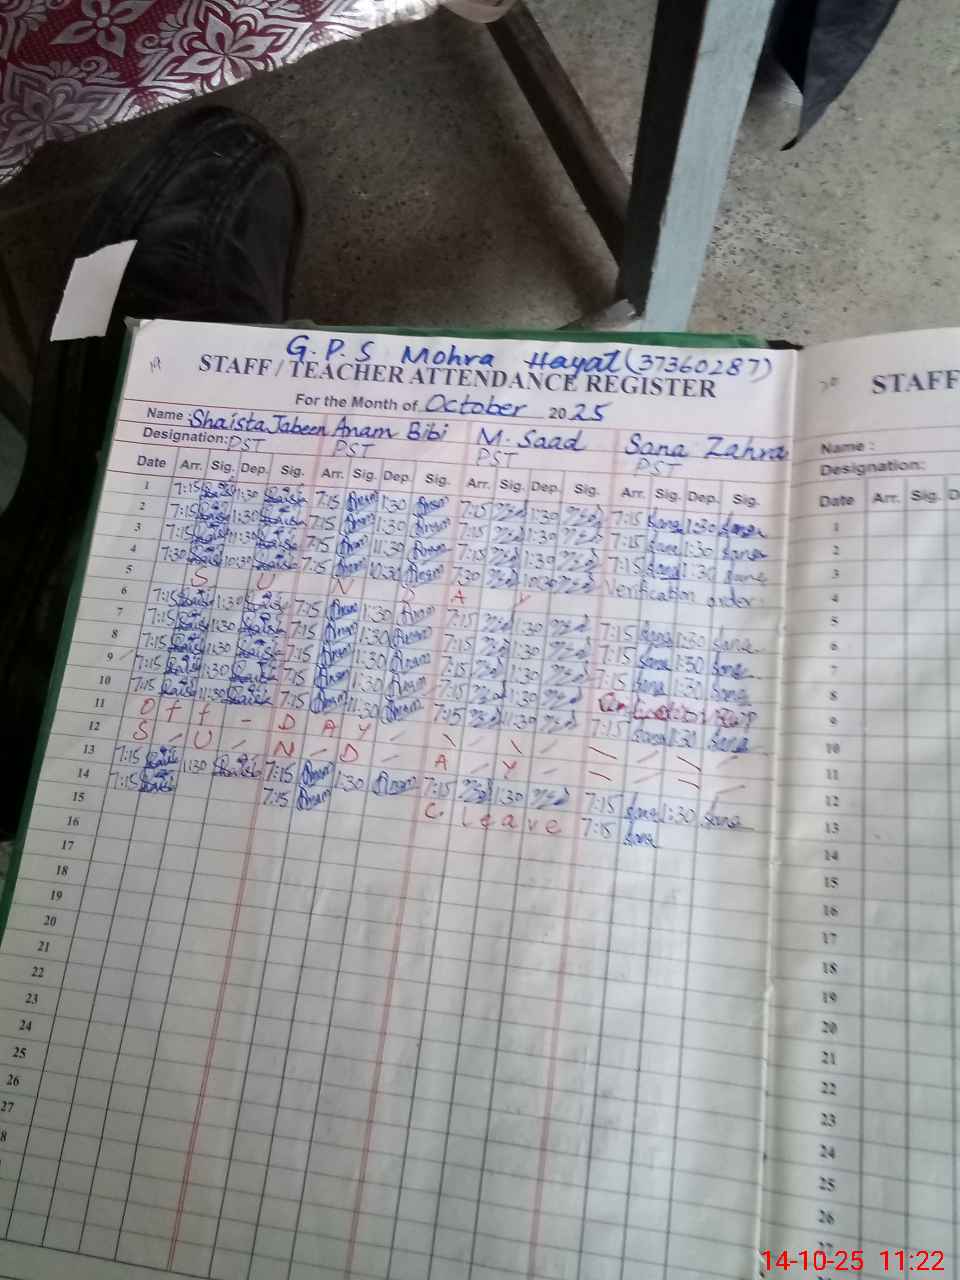 G.P.S Mohra Hayat (37360287)
STAFF / TEACHER ATTENDANCE REGISTER
For the Month of October 2025
Name : Shaista Jabeen Anam Bibi M. Saad Sana Zahra
Designation: PST PST PST PST
Date Arr. Sig. Dep. Sig. Arr. Sig. Dep. Sig. Arr. Sig. Dep. Sig. Arr. Sig. Dep. Sig.
1 7:15 1:30 7:15 Anam 1:30 Anam 7:15 1:30 7:15 Sana 1:30 Sana
2 7:15 1:30 7:15 Anam 1:30 Anam 7:15 1:30 7:15 Sana 1:30 Sana
3 7:15 11:30 7:15 Anam 11:30 Anam 7:15 11:30 7:15 Sana 1:30 Sana
4 7:30 10:30 7:15 Anam 10:30 Anam 7:30 10:30 Verification order
5 S U N D A Y
6 7:15 1:30 7:15 Anam 1:30 Anam 7:15 1:30 7:15 Sana 1:30 Sana
7 7:15 1:30 7:15 Anam 1:30 Anam 7:15 1:30 7:15 Sana 1:30 Sana
8 7:15 1:30 7:15 Anam 1:30 Anam 7:15 1:30 7:15 Sana 1:30 Sana
9 7:15 1:30 7:15 Anam 1:30 Anam 7:15 1:30
10 7:15 11:30 7:15 Anam 11:30 Anam 7:15 11:30 7:15 Sana 1:30 Sana
11 O f f - D A Y
12 S U N D A Y
13 7:15 1:30 7:15 Anam 1:30 Anam 7:15 1:30 7:15 Sana 1:30 Sana
14 7:15 7:15 Anam C. leave 7:15 Sana
15
16
17
18
19
20
21
22
23
24
25
26
27
8
STAFF
Name :
Designation:
Date Arr. Sig. D
1
2
3
4
5
6
7
8
9
10
11
12
13
14
15
16
17
18
19
20
21
22
23
24
25
26
14-10-25 11:22